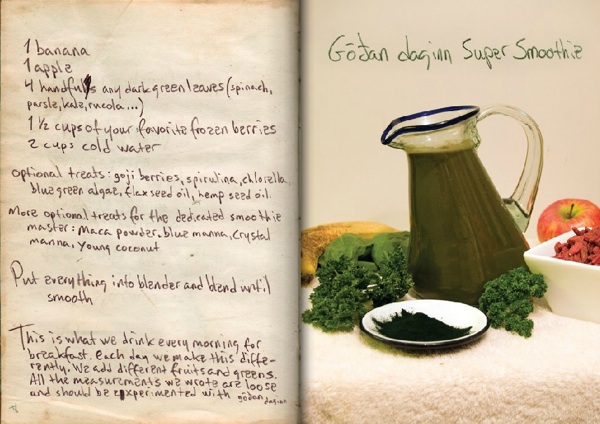 1 banana
1 apple
4 handfuls any dark green leaves (spinach,
parsle, kale, rucola...)
1 1/2 cups of your favorite frozen berries
2 cups cold water
optional treats: goji berries, spirulina, chlorella,
blue green algae, flax seed oil, hemp seed oil.
More optional treats for the dedicated smoothie
master: Maca powder, blue manna, crystal
manna, young coconut
Put everything into blender and blend until
smooth
This is what we drink every morning for
breakfast. Each day we make this diffe-
rently. We add different fruits and greens.
All the measurements we wrote are loose
and should be experimented with góðan
daginn
Góðan daginn Super Smoothie